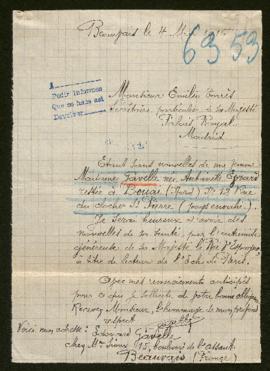 Beauvais le 4
6353
Pedir informes
Que se haga así
Devolver
Monsieur Emilio Torrès
Secrétaire particulier de Sa Majesté
Palais Royal
Madrid
Etant sans nouvelles de ma femme
Madame Gavelle née Antoinette
restée à Douai (Nord) Nº 13 Rue
du clocher St Pierre
Je serai heureux d'avoir des
nouvelles de sa santé, par l'entremise
généreuse de Sa Majesté le Roi d'Espagne
à titre de lecteur de l'Echo de Paris.
Avec mes remerciements anticipés
pour ce que je sollicite de votre bonne obligeance
Recevez Monsieur, l'hommage de mon profond
respect
Voici mon adresse : Edouard Gavelle
chez Mr 15, boulevard de l'assaut
Beauvais (France)